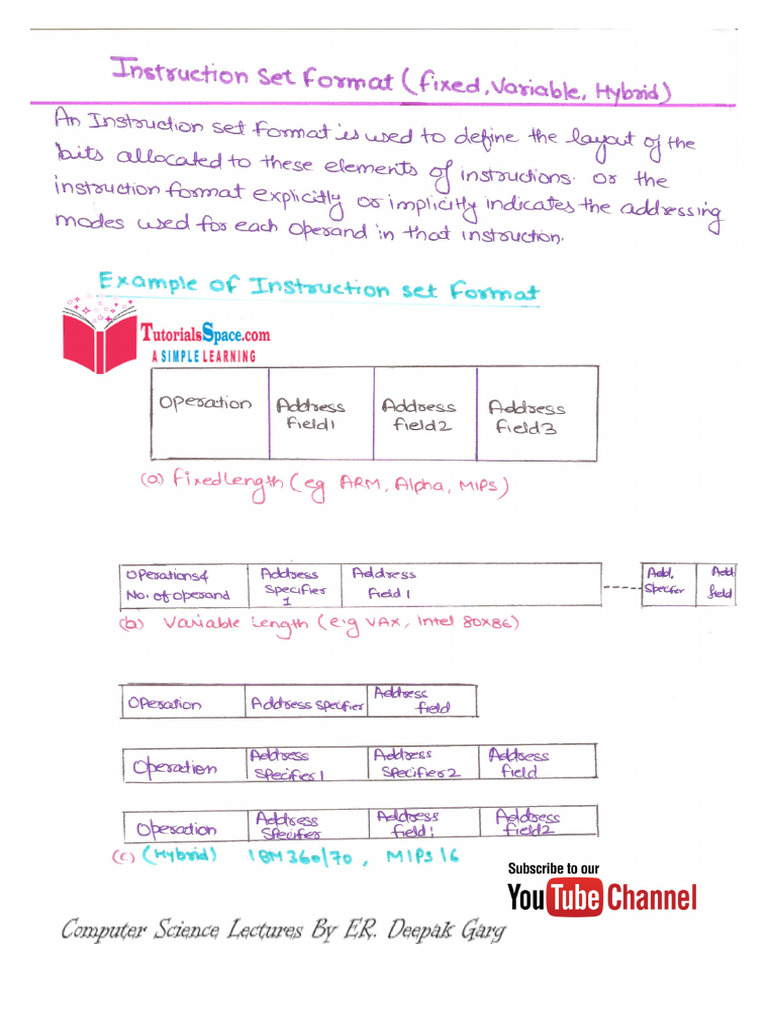 Instruction Set Format (Fixed, Variable, Hybrid)
An Instruction set Format is used to define the layout of the
bits allocated to these elements of instructions. or the
instruction format explicitly or implicitly indicates the addressing
modes used for each operand in that instruction.
Example of Instruction set Format
TutorialsSpace.com
A SIMPLE LEARNING
Operation Address Address Address
Field1 Field2 Field3
(a) Fixed Length (eg ARM, Alpha, MIPS)
Operations & Address Address Add. Add
No. of operand Specifier Field 1 Specifier field
1
(b) Variable Length (e.g VAX, Intel 80X86)
Operation Address Specifier Address
field
Operation Address Address Address
Specifier 1 Specifier 2 Field
Operation Address Address Address
Specifier field1 field2
(c) (Hybrid) IBM 360/70, MIPS 16
Subscribe to our
YouTube Channel
Computer Science Lectures By ER. Deepak Garg